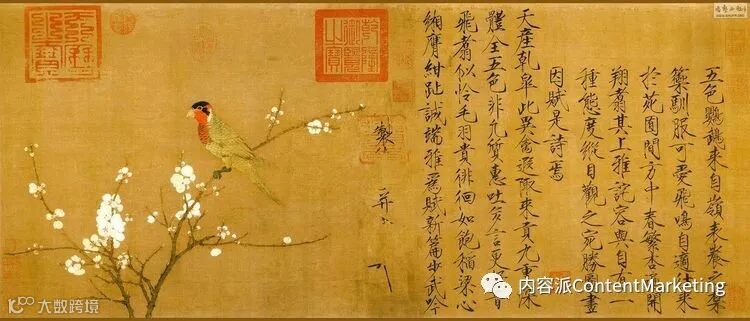 五色鸚鵡來自嶺表養之禁
籞馴服可愛飛鳴自適往來
於苑囿間方中春繁杏遍開
翔翥其上雅詫容與自有一
種態度縱目觀之宛勝圖畫
因賦是詩焉
天產乾皋此異禽遐陬來貢九重深
體全五色非凡質惠吐多言更好音
飛翥似憐毛羽貴徘徊如飽稻粱心
緗膺紺趾誠端雅為賦新篇步武吟
製
并
大数跨境
内容派ContentMarketing